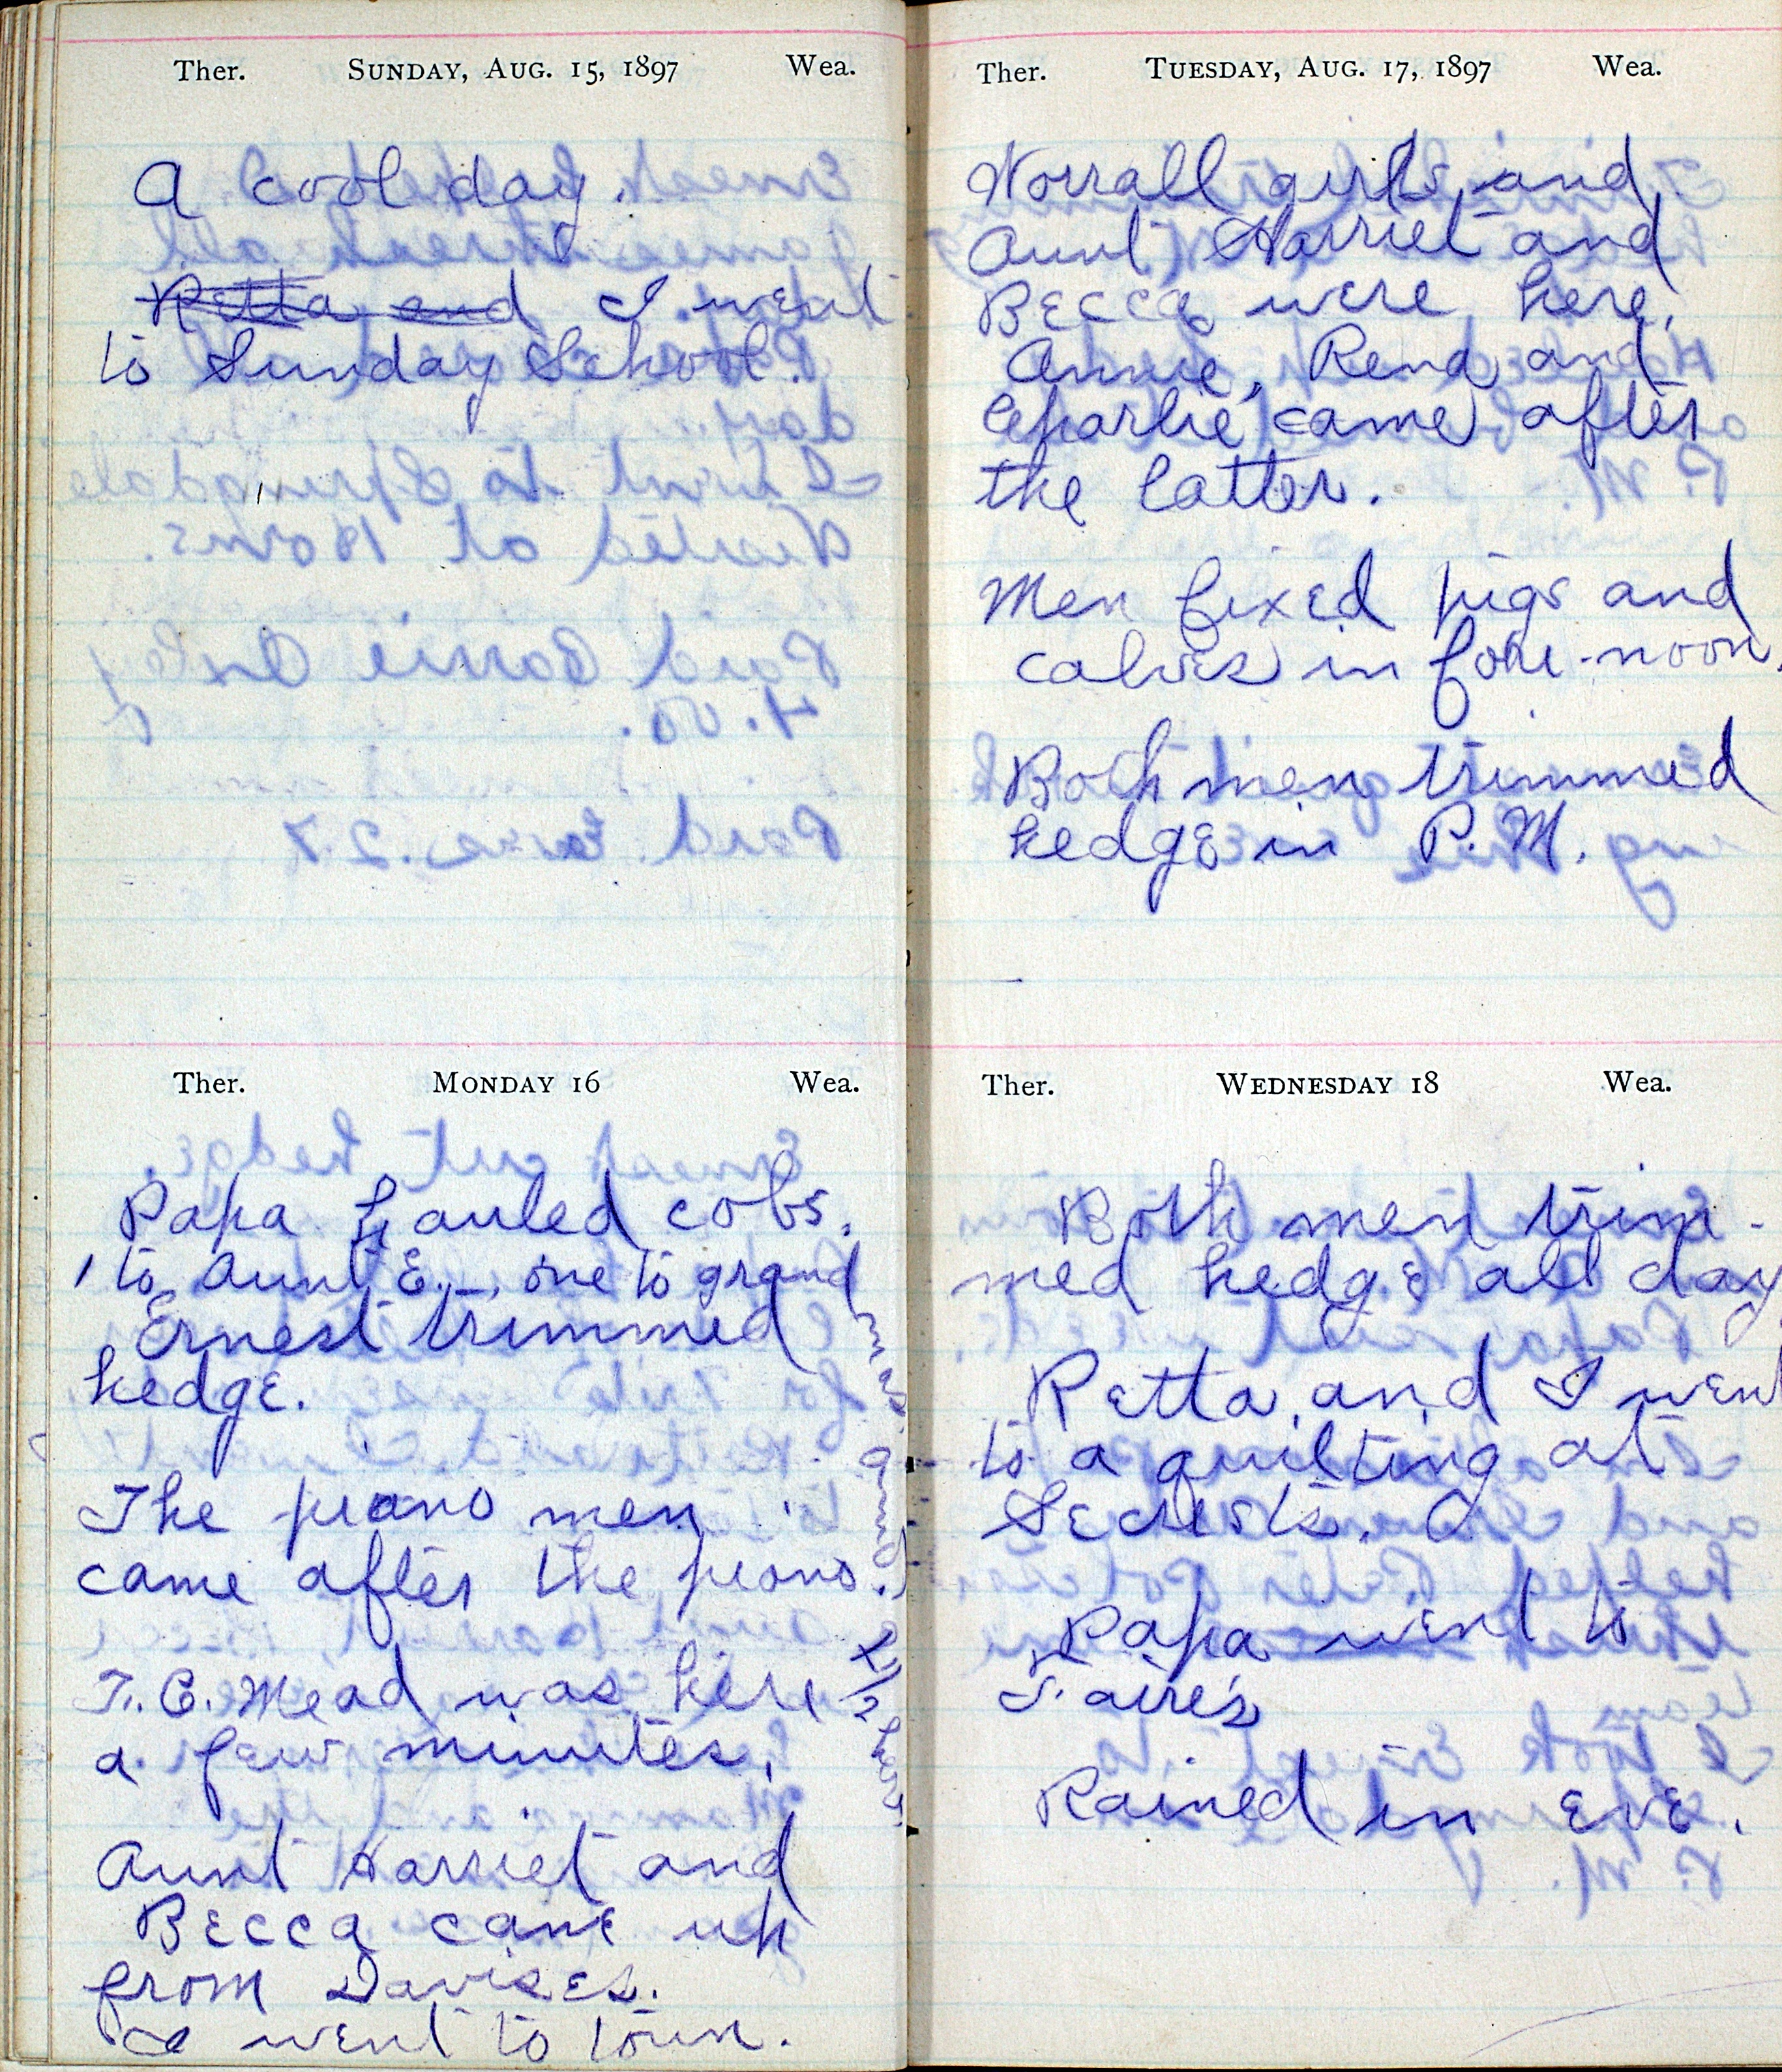 Ther. SUNDAY, AUG. 15, 1897 Wea.
A cool day.
Retta and I went
to Sunday School.
Ther. MONDAY 16 Wea.
Papa hauled cobs.
1 to Aunt E., one to grand
mas. and
Ernest trimmed
hedge.
The piano men
came after the piano.
T. C. Mead was here
a few minutes.
Aunt Harriet and
Becca came up
from Davises.
I went to town.
Ther. TUESDAY, AUG. 17, 1897 Wea.
Worrall girls and
Aunt Harriet and
Becca were here.
Annie, Rena and
Charlie came after
the latter.
Men fixed pigs and
calves in fore-noon.
Both men trimmed
hedge in P. M.
Ther. WEDNESDAY 18 Wea.
Both men trim-
med hedge all day
Retta and I went
to a quilting at
Secrists.
Papa went to
T. aire's
Rained in eve.